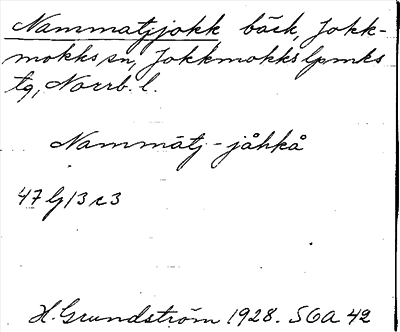 Nammatjjokk bäck, Jokk-
mokks sn, Jokkmokks lpmks
tg, Norrb. l.
Nammātj - jåhkå
47 G/3 c3
H. Grundström 1928. SOA 42